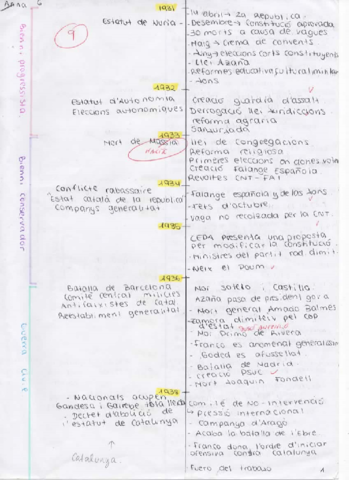 Anna G
9
1931
Estatut de Núria
- 14 abril → 2a República
- Desembre → Constitució aprovada
- 30 morts a causa de vagues
- Maig → crema de convents
- Juny → eleccions corts constituents
- Llei Azaña
- Reformes educativa, cultural, militar
- JONS
Bienni progressista
1932
Estatut d'autonomia
Eleccions autonomiques
- Creació guàrdia d'assalt
- Derrogació llei Juridiccions
- reforma agraria
- Sanjurjada
1933
Mort de Macià
- Llei de Congregacions
- Reforma religiosa
- Primeres eleccions en dones votant
- Creació Falange Española
- Revoltes CNT - FAI
Bienni conservador
1934
Conflicte rabassaire
Estat català de la república
Companys generalitat
- Falange española y de las Jons
- Fets d'octubre
- Vaga no recolzada per la CNT.
1935
- CEDA presenta una proposta
per modificar la constitució
- Ministres del partit rad. dimit.
- Neix el POUM
1936
Batalla de Barcelona
Comitè central milícies
Antifeixistes de Catal
Restabliment generalitat
- Azaña passa de pres. del gov. a
- Mort general Amado Balmes
- Mort Primo de Rivera
- Franco es anomenat generalíssim
- Goded es afusellat
- Batalla de Madrid
- Creació PSUC
Guerra Civil
1938
- Nacionals ocupen
Gandesa i gairebé tota Lleida
- Decret d'abolició de
l'estatut de Catalunya
↑
Catalunya.
- Comitè de No-Intervenció
↳ Pressió internacional
- Campanya d'Aragó
- Acaba la batalla de l'Ebre
- Franco dona l'ordre d'iniciar
ofensiva contra Catalunya
- Fuero del trabajo
1